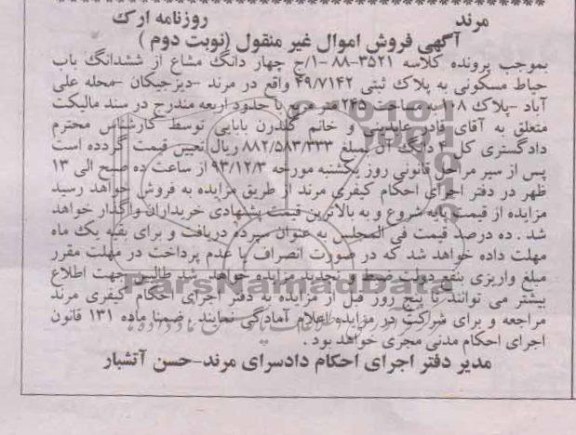 مرند روزنامه ارک
آگهی فروش اموال غیر منقول (نوبت دوم )
بموجب پرونده کلاسه ۳۵۲۱–۸۸–۱/ج چهار دانگ مشاع از ششدانگ باب
حیاط مسکونی به پلاک ثبتی ۴۹/۷۱۴۲ واقع در مرند –دیزجیکان –محله علی
آباد –پلاک ۱۰۸ به مساحت ۲۴۵ متر مربع با حدود اربعه مندرج در سند مالیکت
متعلق به آقای قادر عابدینی و خانم گلدرن بابایی توسط کارشناس محترم
دادگستری کل ۴ دانگ آن بمبلغ ۸۸۲/۵۸۳/۳۳۳ ریال تعیین قیمت گردده است
پس از سیر مراحل قانونی روز یکشنبه مورخه ۹۳/۱۲/۳ از ساعت ده صبح الی ۱۳
ظهر در دفتر اجرای احکام کیفری مرند از طریق مزایده به فروش خواهد رسید
مزایده از قیمت پایه شروع و به بالاترین قیمت پیشنهادی خریداران واگذار خواهد
شد . ده درصد قیمت فی المجلس به عنوان سپرده دریافت و برای بقیه یک ماه
مهلت داده خواهد شد که در صورت انصراف یا عدم پرداخت در مهلت مقرر
مبلغ واریزی بنفع دولت ضبط و تجدید مزایده خواهد شد طالبین جهت اطلاع
بیشتر می توانند تا پنج روز قبل از مزایده به دفتر اجرای احکام کیفری مرند
مراجعه و برای شراکت در مزایده اعلام آمادگی نمایند . ضمنا ماده ۱۳۱ قانون
اجرای احکام مدنی مجری خواهد بود .
مدیر دفتر اجرای احکام دادسرای مرند–حسن آتشبار
ParsNamadData